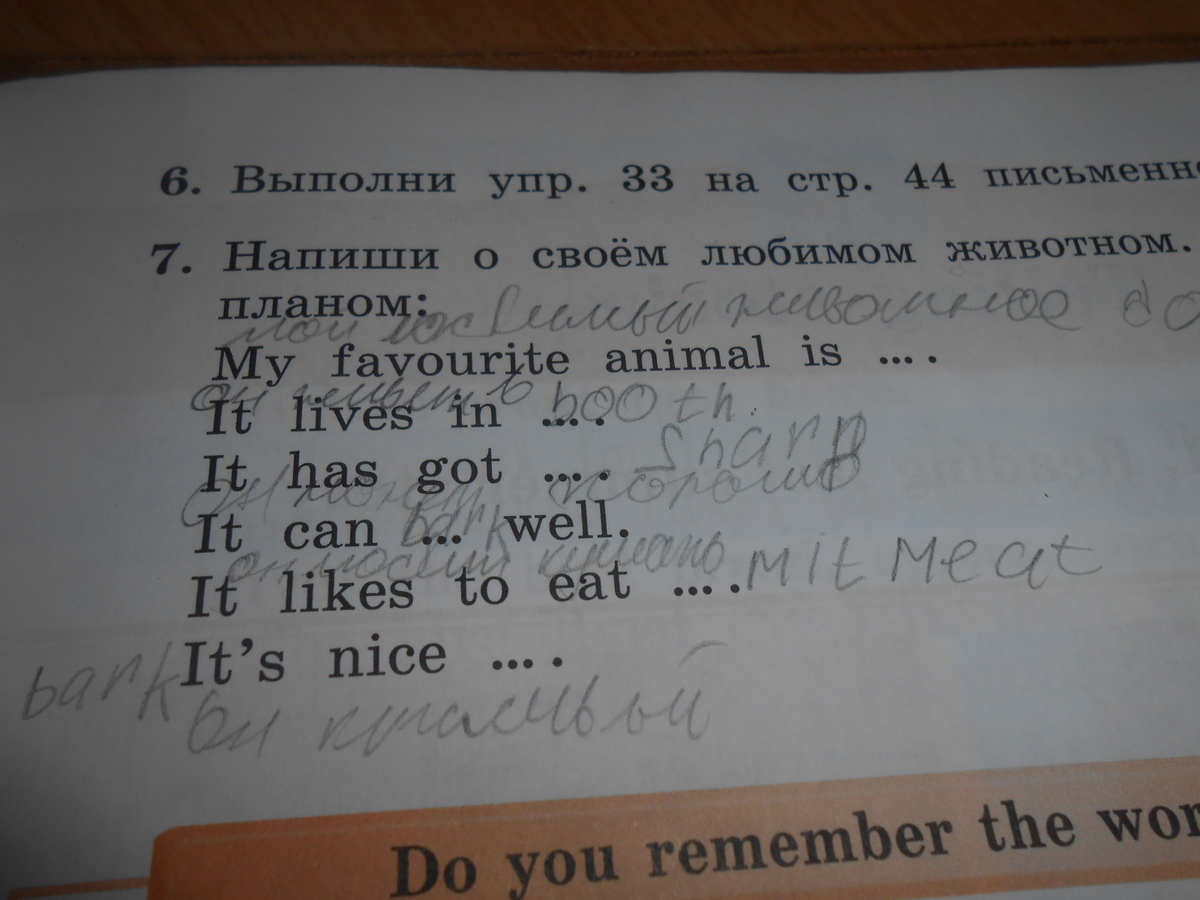 6. Выполни упр. 33 на стр. 44 письменно
7. Напиши о своём любимом животном.
планом:
мой животное до
My favourite animal is ... .
он живет в booth.
It lives in ... .
sharp
It has got ... .
хорошо
It can ... well.
bark
он кушать
It likes to eat ... . mit Meat
It's nice ... .
bark
Он красивый
Do you remember the wor